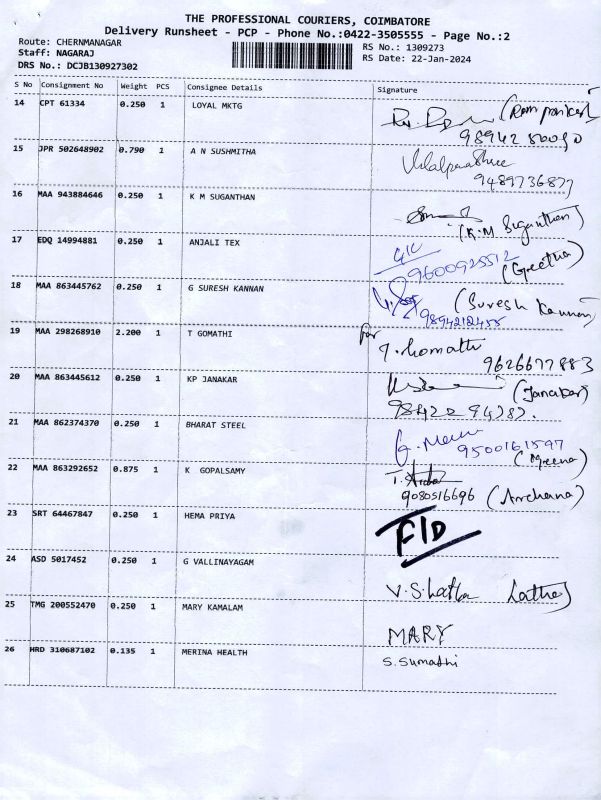 THE PROFESSIONAL COURIERS, COIMBATORE
Delivery Runsheet - PCP - Phone No.:0422-3505555 - Page No.:2
Route: CHERNMANAGAR
RS No.: 1309273
Staff: NAGARAJ
RS Date: 22-Jan-2024
DRS No.: DCJB130927302
S No Consignment No Weight PCS Consignee Details Signature
14 CPT 61334 0.250 1 LOYAL MKTG
15 JPR 502648902 0.790 1 A N SUSHMITHA
9489736877
16 MAA 943884646 0.250 1 K M SUGANTHAN
(K.M Suganthan)
17 EDQ 14994881 0.250 1 ANJALI TEX
9600925512 (Greetha)
18 MAA 863445762 0.250 1 G SURESH KANNAN
(Suresh Kannan)
9894212455
19 MAA 298268910 2.200 1 T GOMATHI
for
T. Gomathi
9626677883
20 MAA 863445612 0.250 1 KP JANAKAR
(Janakar)
21 MAA 862374370 0.250 1 BHARAT STEEL
G. Meena
9500161597
(Meena)
22 MAA 863292652 0.875 1 K GOPALSAMY
9080516696 (Archana)
23 SRT 64467847 0.250 1 HEMA PRIYA
F/D
24 ASD 5017452 0.250 1 G VALLINAYAGAM
V.S.Latha Latha
25 TMG 200552470 0.250 1 MARY KAMALAM
MARY
26 HRD 310687102 0.135 1 MERINA HEALTH
S.Sumathi